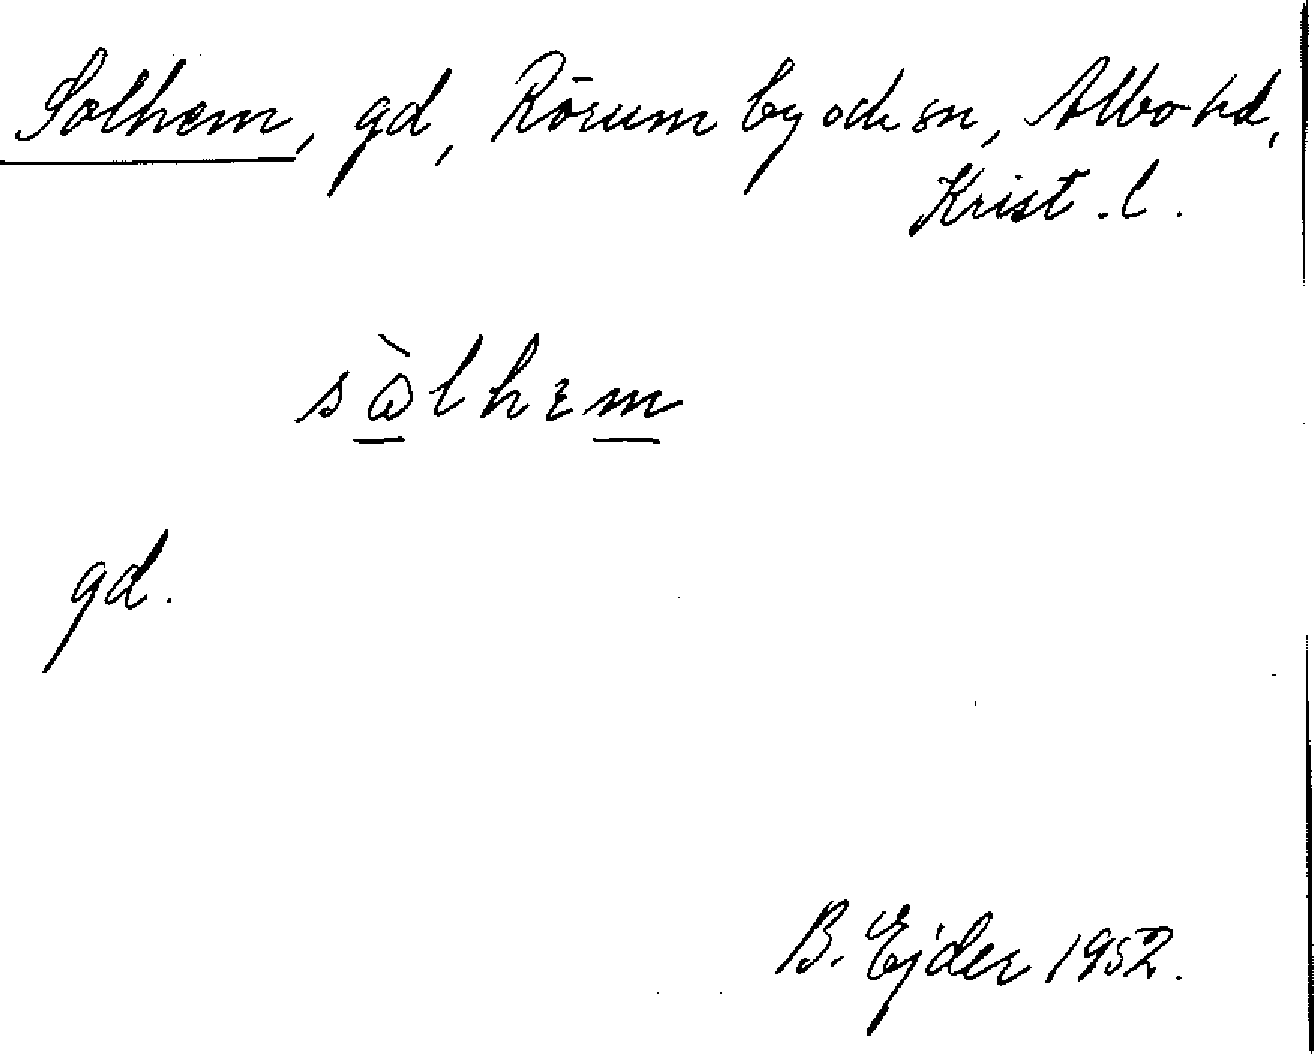 Solhem, gd, Rörum by och sn, Albo hd,
Krist. l.
sὼlhεm
gd.
B. Ejder 1952.